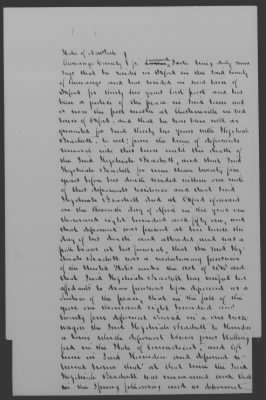 State of New York }
Chenango County } ss
being duly sworn
says that he resides in Oxford in the said County
of Chenango and has resided in said town of
Oxford for thirty two years last past and has
been a justice of the peace in said town and
is now the post master at in said
town of Oxford, and that he has been well ac
quainted for said thirty two years with Hezekiah
late from the time of deponents
removal into this town until the death of
the said Hezekiah and that said
Hezekiah for more than twenty five
years before his death resided within one mile
of this deponents residence and that said
Hezekiah died at Oxford aforesaid
on the day of April in the year one
thousand eight hundred and fifty one, and
that deponent was present at his house the
day of his death and attended and was a
pall bearer at his funeral, that the said He
zekiah was a revolutionary pensioner
of the United States under the act of and
that said Hezekiah has verified his
affidavits to draw pensions before deponent as a
justice of the peace, that in the fall of the
year one thousand eight hundred and
twenty five deponent in a one horse
wagon the said Hezekiah to Hamden
a town where deponent was
in the State of Connecticut, and left
him in said Hamden and deponent re-
turned home that at that time the said
Hezekiah was unmarried and that
in the Spring following said as deponent